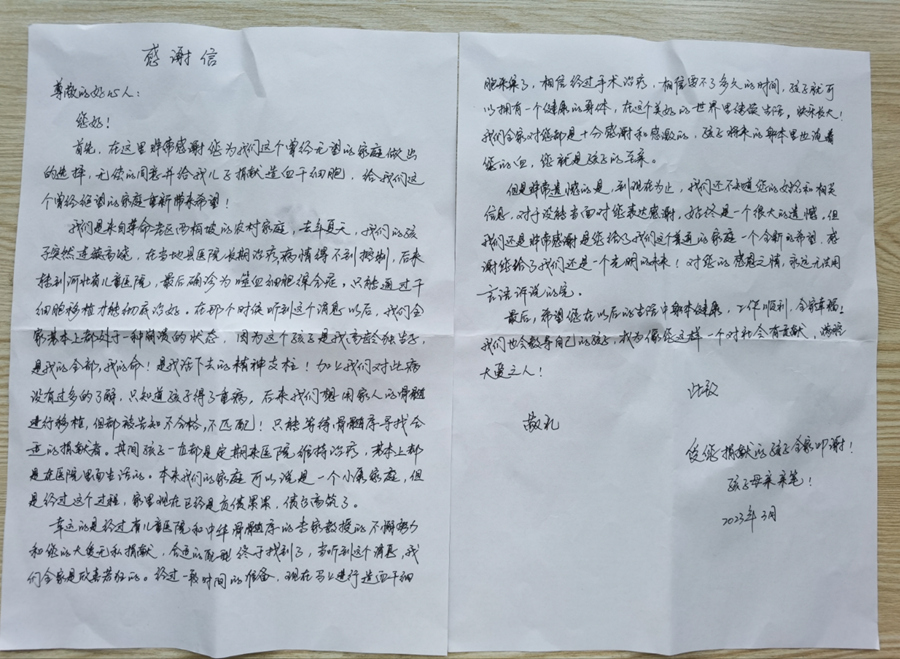 感谢信
尊敬的好心人：
您好！
首先，在这里非常感谢您为我们这个曾经无望的家庭做出
的选择，无偿的同意并给我儿子捐献造血干细胞，给我们这
个曾经绝望的家庭重新带来希望！
我们是来自革命老区西柏坡的农村家庭，去年夏天，我们的孩
子突然连续高烧，在当地县医院长期治疗病情得不到控制，后来
转到河北省儿童医院，最后确诊为噬血细胞综合症。只能通过干
细胞移植才能彻底治好。在那个时候听到这个消息以后，我们全
家基本上都处于一种崩溃的状态，因为这个孩子是我高龄独生子，
是我的全部，我的命！是我活下去的精神支柱！加上我们对此病
没有过多的了解，只知道孩子得了重病，后来我们想用家人的骨髓
进行移植，但都被告知不合格，不匹配！只能等待骨髓库寻找合
适的捐献者。其间孩子一直都是定期来医院维持治疗，基本上都
是在医院里面生活的。本来我们的家庭可以说是一个小康家庭，但
是经过这个过程，家里现在已经是负债累累，债台高筑了。
幸运的是经过省儿童医院和中华骨髓库的专家教授的不懈努力
和您的大爱无私捐献，合适的配型终于找到了，当听到这个消息，我
们全家是欣喜若狂的。经过一段时间的准备，现在马上进行造血干细
胞采集了，相信经过手术治疗，相信要不了多久的时间，孩子就可
以拥有一个健康的身体，在这个美好的世界里健康生活，快乐长大！
我们全家对您都是十分感谢和感激的，孩子将来的身体里也流着
您的血，您就是孩子的至亲。
但是非常遗憾的是，到现在为止，我们还不知道您的姓名和相关
信息，对于没能当面对您表达感谢，始终是一个很大的遗憾，但
我们还是非常感谢是您给了我们这个普通的家庭一个全新的希望，感
谢您给了我们还是一个光明的未来！对您的感恩之情，永远无法用
言语诉说的完。
最后，希望您在以后的生活中身体健康，工作顺利，全家幸福！
我们也会教导自己的孩子，成为像您这样一个对社会有贡献，满怀
大爱之人！
此致
敬礼
受您捐献的孩子全家叩谢！
孩子母亲亲笔！
2023年3月